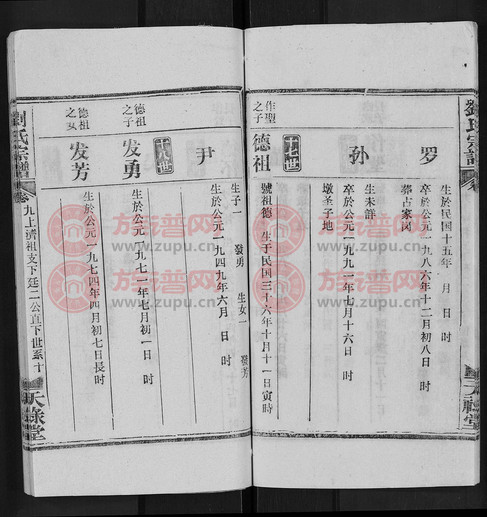 劉氏宗譜
天祿堂
罗
生於民国十五年 月 日 时
卒於公元一九八六年十二月初八日 时
葬占家岗
孙
生未詳
卒於公元一九九一年七月十六日 时
墩圣子地
十七世
作聖之子
德祖
號祖德 生于民国三十六年十月十一日寅時
尹
生於公元一九四九年六月 日 时
生子一 發勇 生女一 發芳
十八世
德祖之子
发勇
生於公元一九七一年七月初一日 时
德祖之女
发芳
生於公元一九七四年四月初七日長时
劉氏宗譜
卷九上濟祖支下廷二公直下世系
天祿堂
族谱网
www.zupu.cn
族谱网
www.zupu.cn
族谱网
www.zupu.cn
族谱网
www.zupu.cn
族谱网
www.zupu.cn
族谱网
www.zupu.cn